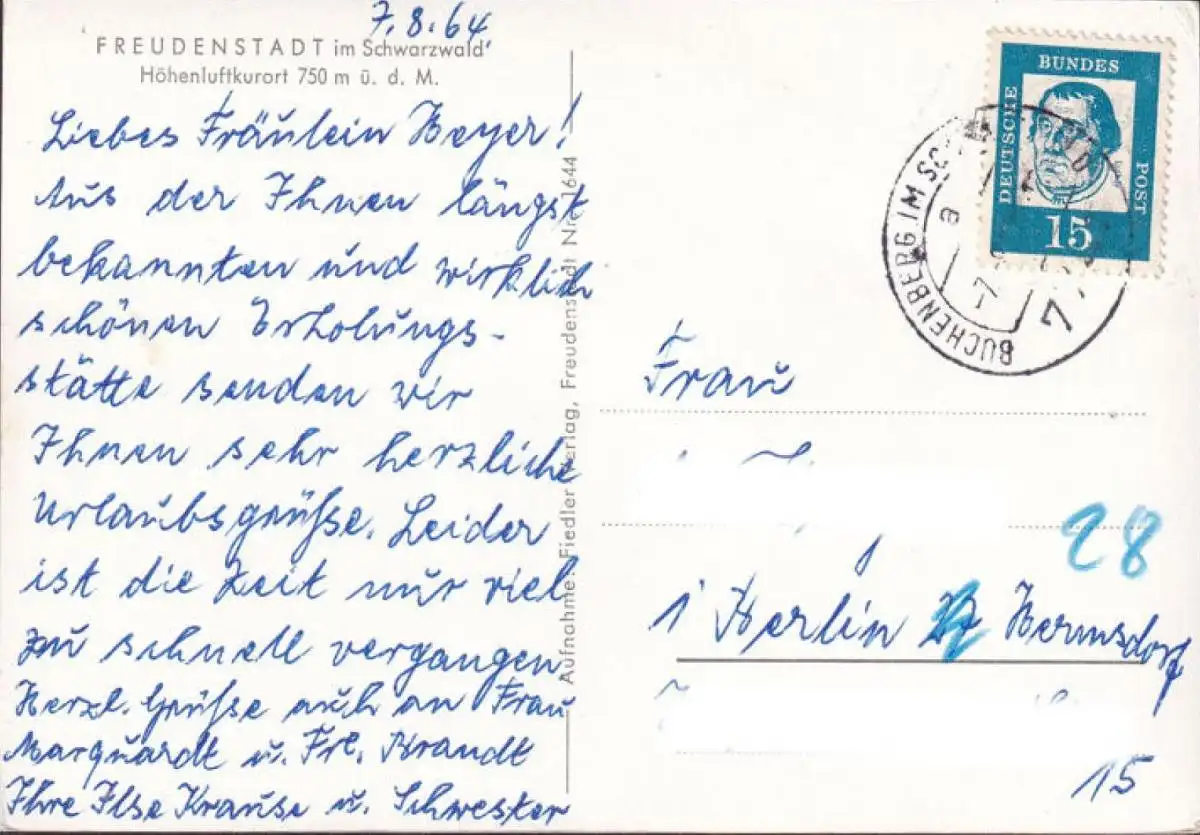 7.8.64
FREUDENSTADT im Schwarzwald
Höhenluftkurort 750 m ü. d. M.
Liebes Fräulein Heyer!
Aus der Ihnen längst
bekannten und wirklich
schönen Erholungs-
stätte senden wir
Ihnen sehr herzliche
Urlaubsgrüße. Leider
ist die Zeit nur viel
zu schnell vergangen
Herzl. Grüße auch an Frau
Marquardt u. Frl. Brandt
Ihre Ilse Krause u. Schwester
Aufnahme: Fiedler Verlag, Freudenstadt Nr. 1644
DEUTSCHE
BUNDES
POST
15
BUCHENBERG IM
a
7
Frau
1 Berlin Hermsdorf
28
15